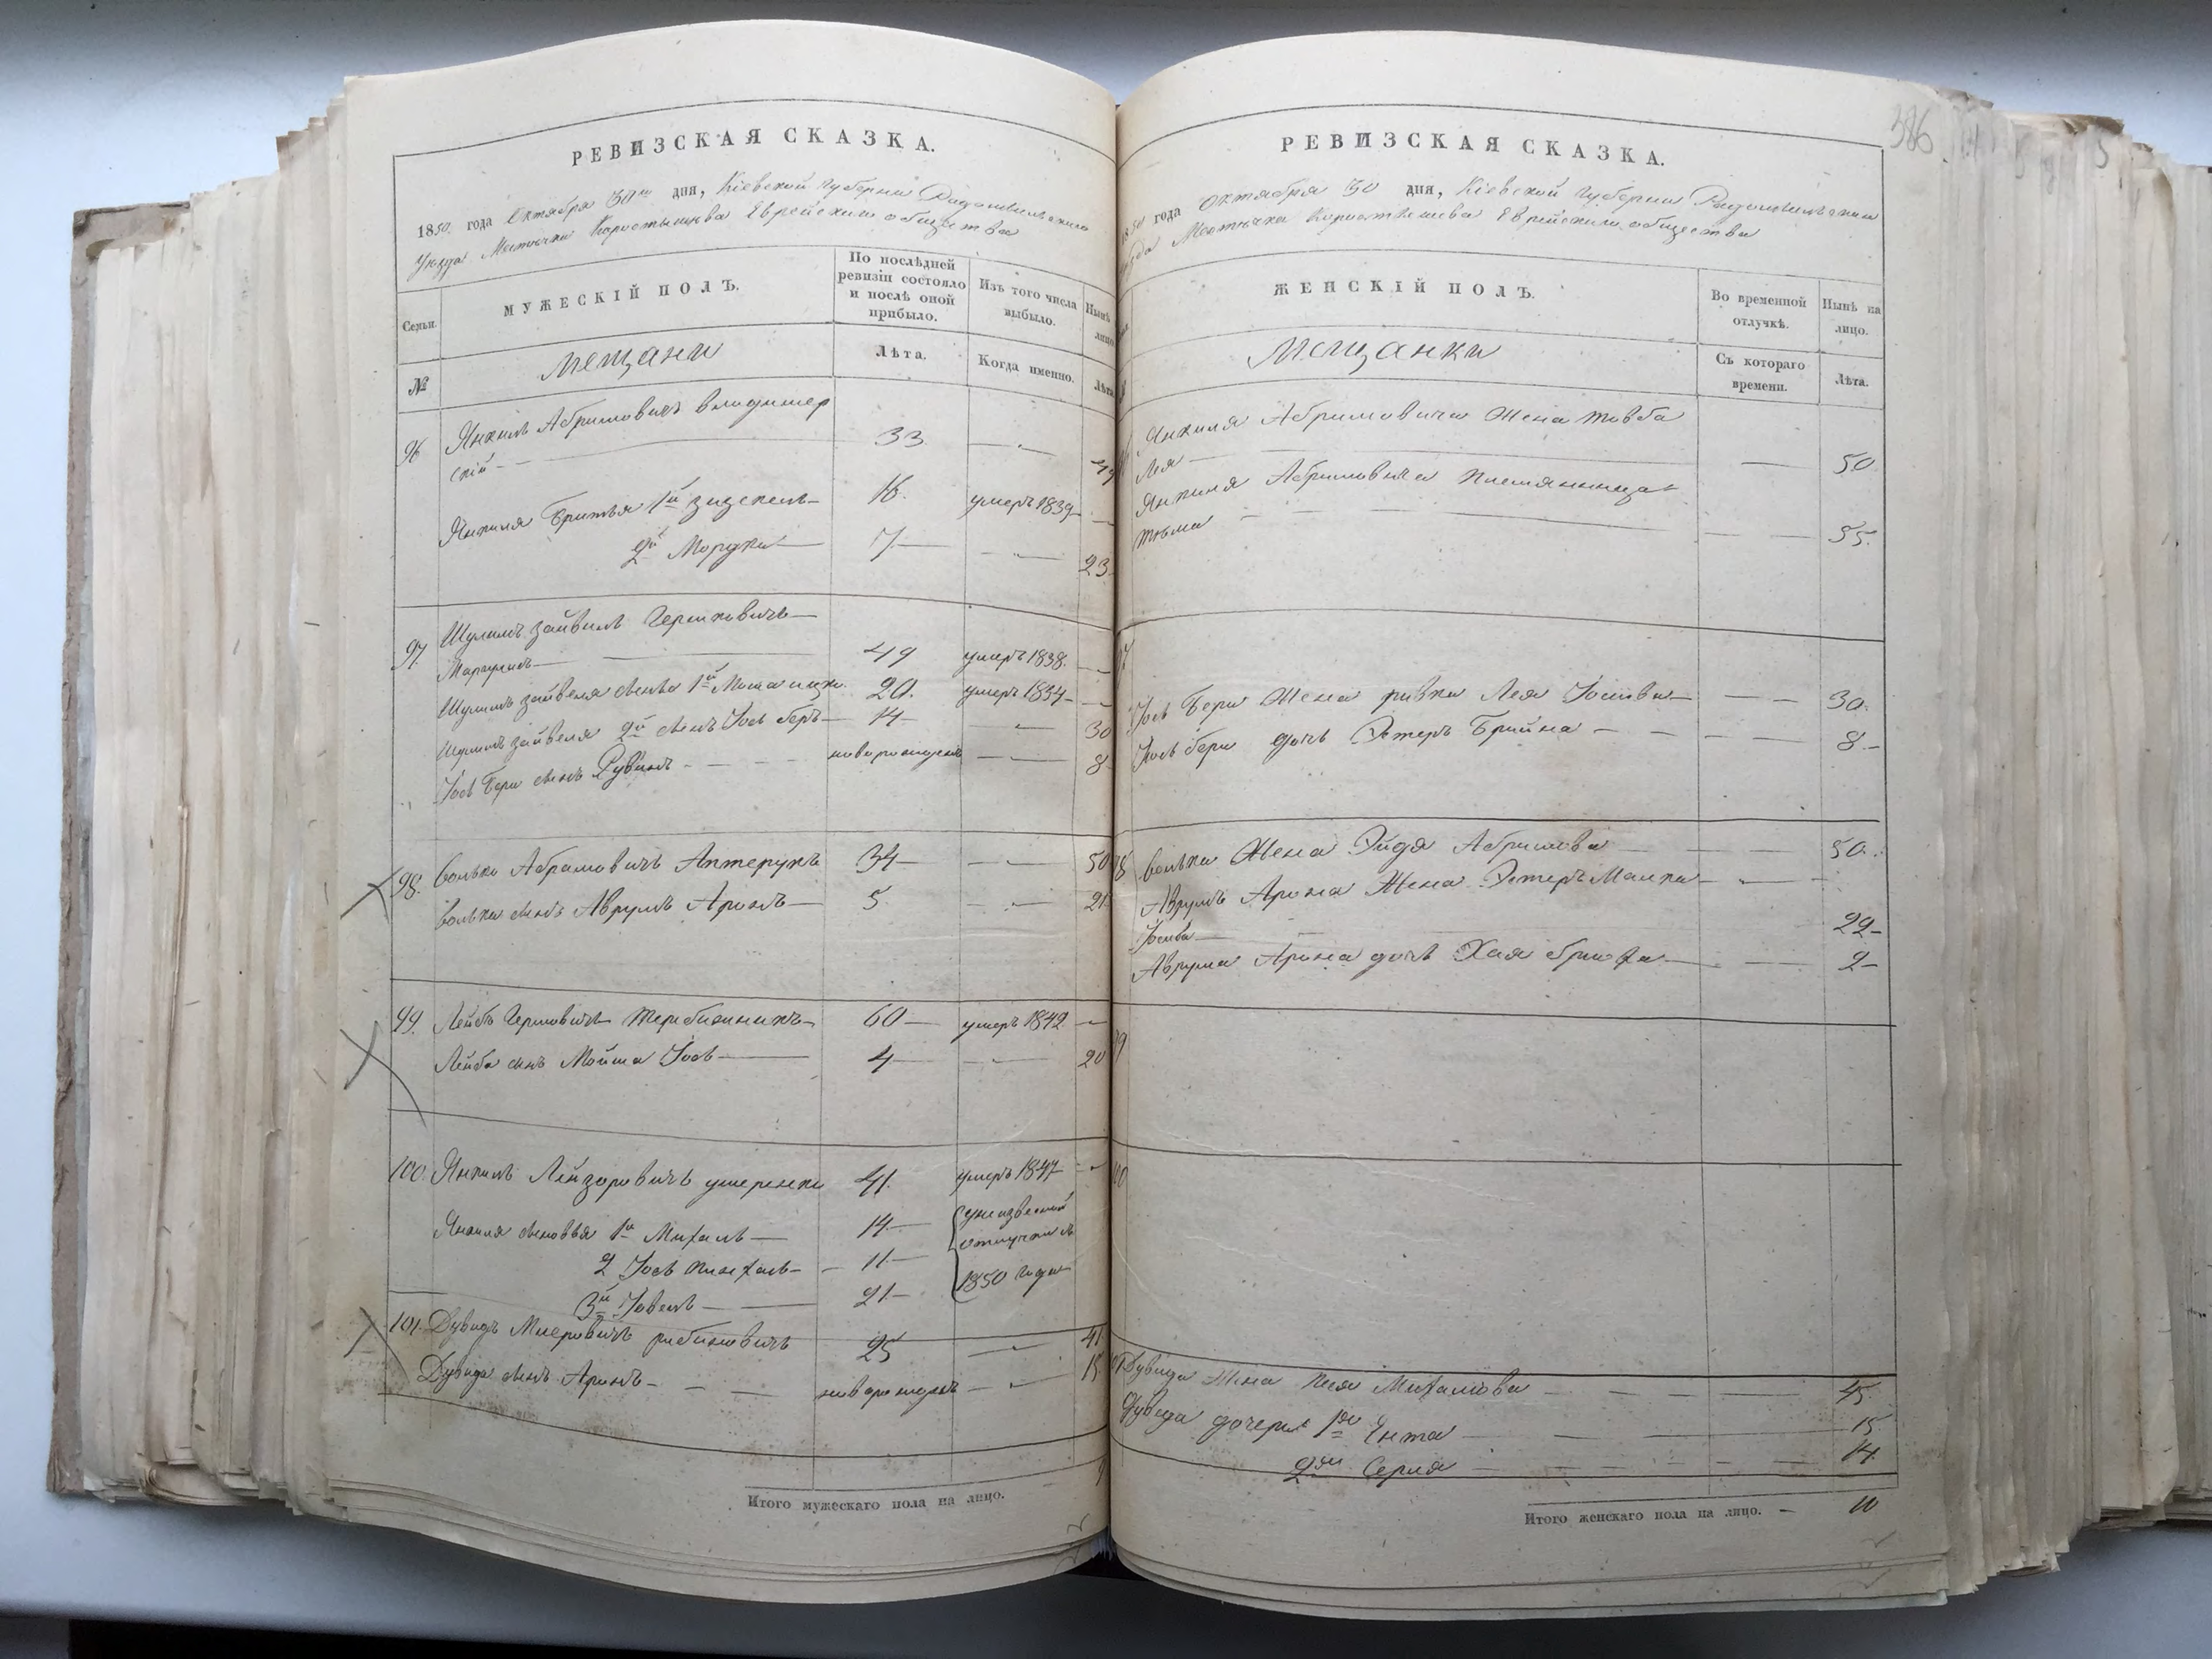 РЕВИЗСКАЯ СКАЗКА.
1850. года Октября 30го дня, Кіевской Губерніи Радомысльскаго
Уезда Местечка Коростышева Еврейскаго общества
Семьи.
МУЖЕСКІЙ ПОЛЪ.
По послѣдней ревизіи состояло и послѣ оной прибыло.
Изъ того числа выбыло.
Нынѣ лицо.
№
Мещани
Лѣта.
Когда именно.
Лѣта
96 Янкель Абрамовичъ Владимер
скій 33. 49
Янкиля Братья 1й 16. умеръ 1839
2й Мордко 7 23
97 Шулимъ Зайвель Гершковичъ
Маргулисъ 49 умеръ 1838.
Шулимъ Зайвеля сынъ 1й 20. умеръ 1834
Шулимъ Зайвеля 2й сынъ Іось Беръ 14 30
Іось Бера сынъ Рувинъ новорожденъ 8
98. Волько Абрамовичъ Аптерукъ 34 50
Волька сынъ Аврумъ Аронъ 5 21
99. Лейбъ Гершовичъ 60 умеръ 1842
Лейба сынъ Мойша Іось 4 20
100. Янкель Лейзоровичъ 41. умеръ 1847
Янкиля сыновья 1й Михель 14 у неизвестной
2 Іось 11 отлучки съ
3й Іовель 21 1850 года
101. Дувидъ Мееровичъ Рабиновичъ 25 41
Дувида сынъ Аронъ новорожденъ 15
Итого мужескаго пола на лицо. 9
386
РЕВИЗСКАЯ СКАЗКА.
1850 года Октября 30 дня, Кіевской Губерніи Радомысльскаго
уезда Местечка Коростышева Еврейскаго общества
ЖЕНСКІЙ ПОЛЪ.
Во временной отлучкѣ.
Нынѣ на лицо.
Мещанки
Съ котораго времени.
Лѣта.
Янкиля Абрамовича Жена Товба
Лея 50
Янкиля Абрамовича племянница
55.
97
Іось Бера Жена Ривка Лея Іосиова 30.
Іось Бера дочь Эстеръ Брайна 8
98 Волька Жена Эйдя Абрамова 50.
Аврумъ Арона Жена Эстеръ Малка
22
Аврума Арона дочь Хая 2
99
100
101 Дувида Жена Михалиова 45.
Дувида дочери 1я Ента 15
2я 14.
Итого женскаго пола на лицо. — 10